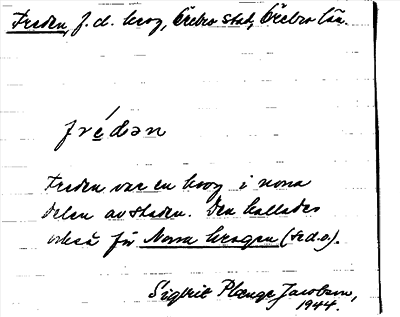 Freden, f.d. krog, Örebro stad, Örebro län.
fré́dən
Freden var en krog i norra
delen av staden. Den kallades
också för Norra krogen (se d.o.).
Sigbrit Plænge Jacobson,
1944.